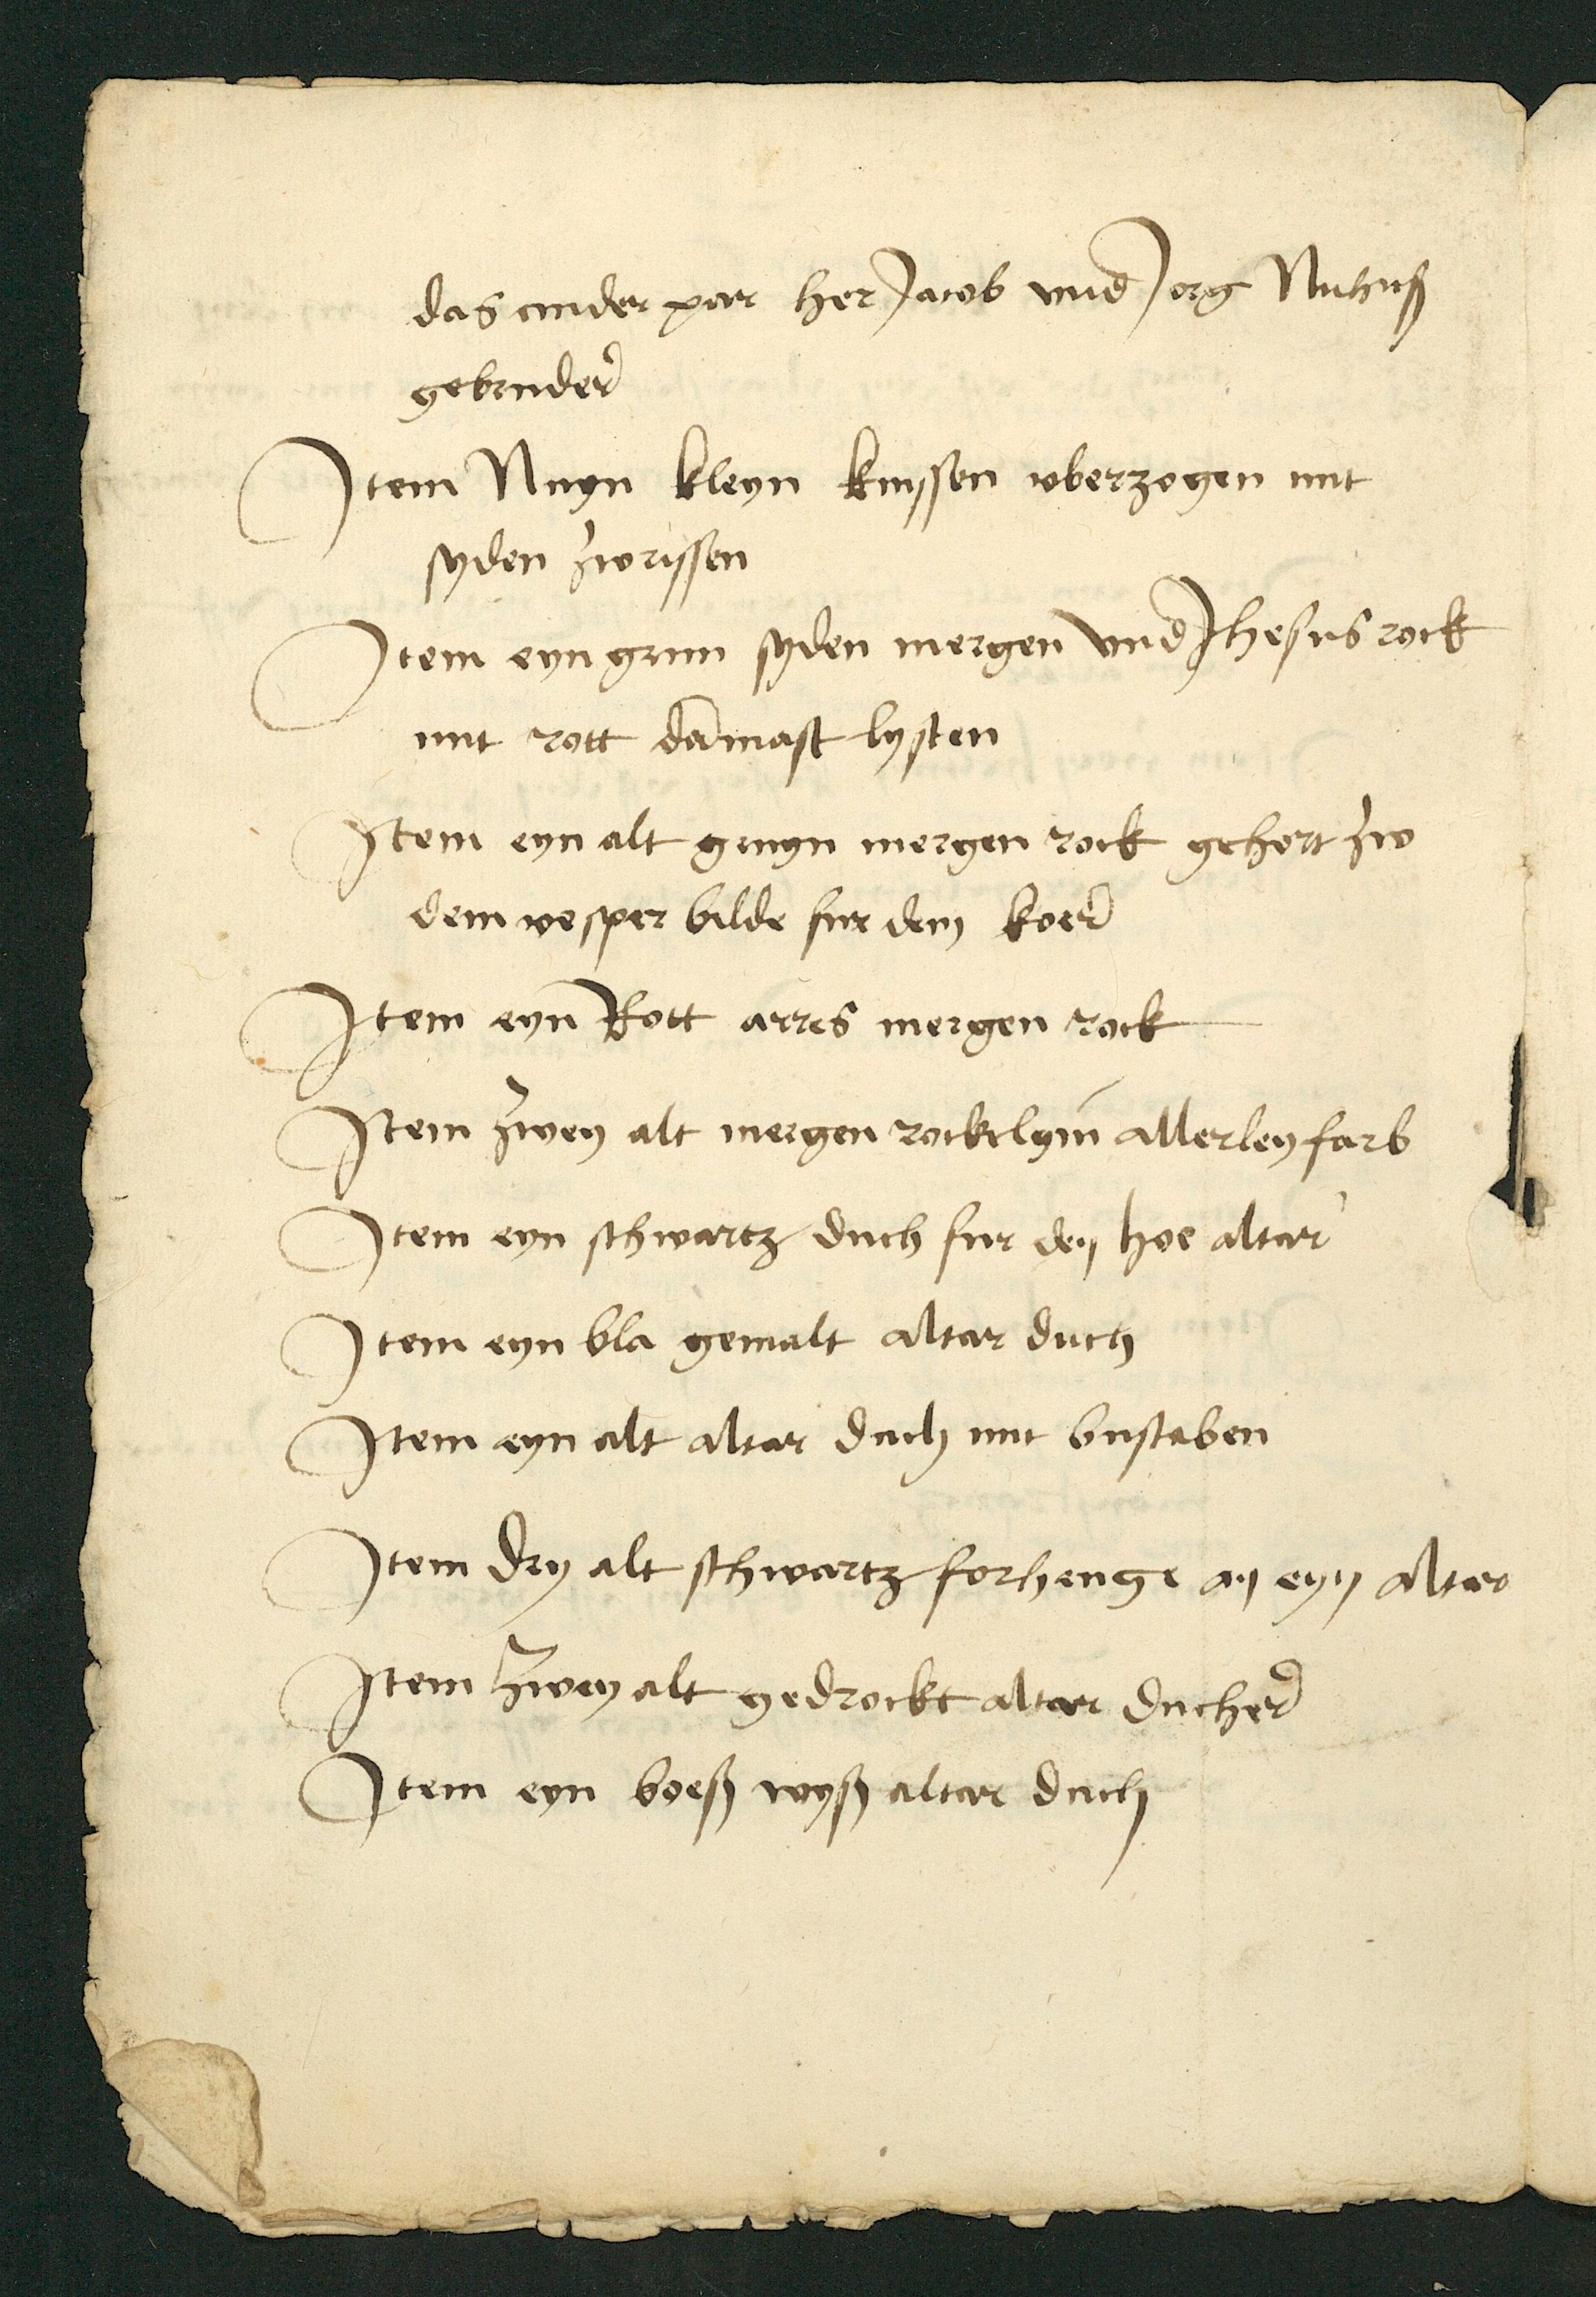 das ander par her Jacob vnd Jorg Nuhuß
gebruder
Item Nuyn kleyn kussen vberzogen mit
syden zworissen
Item eyn grun syden mergen vnd Jhesus rock
mit rott damast lysten
Item eyn alt gruyn mergen rock gehort zw
dem vesper bilde fur dem koer
Item eyn Rott arres mergen rock
Item zwey alt mergen rocklyn allerley farb
Item eyn schwartz duch fur den hoe altar
Item eyn bla gemalt altar duch
Item eyn alt altar duch mit bustaben
Item dry alt schwartz forhenge an eyn altar
Item zwey alt gedrockt altar ducher
Item eyn boeß wyß altar duch